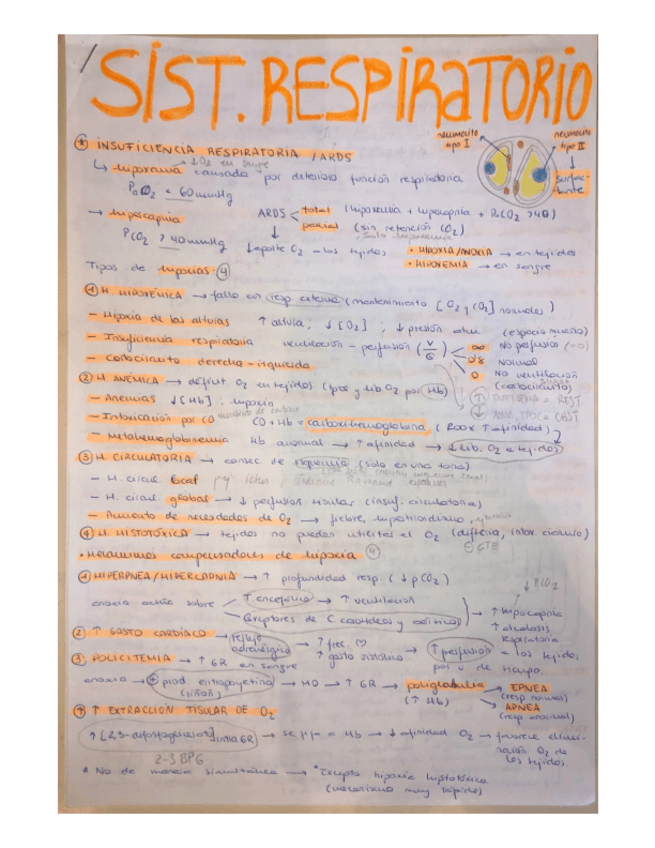 SIST. RESPIRATORIO
neumocito tipo I
neumocito tipo II
surfactante
* INSUFICIENCIA RESPIRATORIA / ARDS
↓O2 en sangre
↳ hipoxemia causada por deterioro función respiratoria
PaO2 < 60 mmHg
→ hipercapnia
PCO2 > 40 mmHg
ARDS < total (hipoxemia + hipercapnia + PaCO2 > 40)
parcial (sin retención CO2)
↓aporte O2 → los tejidos
• HIPOXIA/ANOXIA → en tejidos
• HIPOXEMIA → en sangre
Tipos de hipoxias: ④
① H. HIPOXÉMICA → fallo en resp. externa (mantenimiento [O2 y CO2] normales)
– Hipoxia de las alturas ↑ altura, ↓ [O2], ↓ presión atm.
– Insuficiencia respiratoria ventilación – perfusión (V/
– Cortocircuito derecha-izquierda
∞ No perfusión
0'8 Normal
0 No ventilación (cortocircuito)
② H. ANÉMICA → déficit O2 en tejidos (tpte y lib O2 por Hb)
– Anemias ↓[Hb] : hipoxia
– Intoxicación por CO monóxido de carbono CO + Hb = carboxihemoglobina (200x ↑ afinidad)
– Metahemoglobinemia Hb anormal → ↑ afinidad → ↓ lib. O2 a tejidos
③ H. CIRCULATORIA → consec. de isquemia (solo en una zona)
– H. circul. local
– H. circul. global → ↓ perfusión tisular (insuf. circulatoria)
– Aumento de necesidades de O2 → fiebre, hipertiroidismo
④ H. HISTOTÓXICA → tejidos no pueden utilizar el O2 (difteria, intox. cianuro)
⊖ CTE
• Mecanismos compensadores de hipoxia ④
① HIPERPNEA/HIPERCAPNIA → ↑ profundidad resp. (↓ pCO2)
↓ PCO2
anoxia actúa sobre ↑ encéfalo → ↑ ventilación
Receptores de C carotídeos y aórticos
→ ↑ hipocapnia
↑ alcalosis respiratoria
② ↑ GASTO CARDÍACO → reflejo adrenérgico → ↑ frec. ♡
↑ gasto sistólico → ↑ perfusión a los tejidos
por u de tiempo.
③ POLICITEMIA → ↑ GR en sangre
anoxia → ⊕ prod. eritropoyetina (riñón) → MO → ↑ GR → poliglobulia (↑ Hb)
EPNEA (resp normal)
APNEA (resp anormal)
④ ↑ EXTRACCIÓN TISULAR DE O2
↑ [2,3-difosfoglicerato] intra GR → se fija a Hb → ↓ afinidad O2 → favorece eliminación O2 de los tejidos.
2-3 BPG
* No de manera simultánea → * Excepto hipoxia histotóxica
(mecanismo muy rápido)